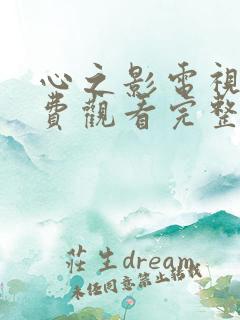 心之影電視
費觀看完整
莊生dream
未经同意禁止转载